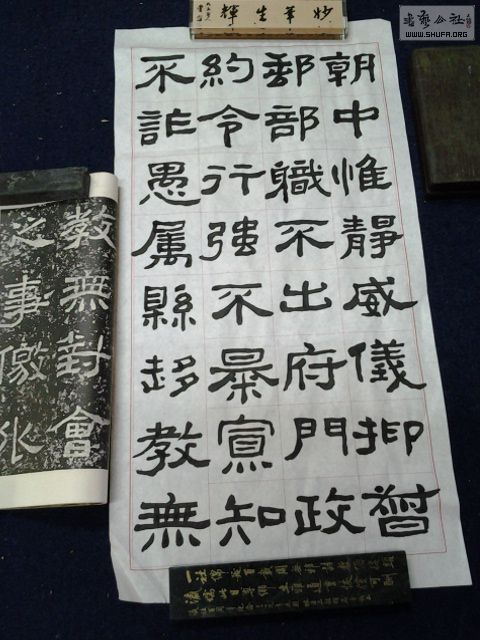 書藝公社
WWW.SHUFA.ORG
妙筆生輝
朝中惟靜威儀抑督
郵部職不出府門政
約令行強不暴寡知
不詐愚属縣趍教無
教無對會
之事儌外